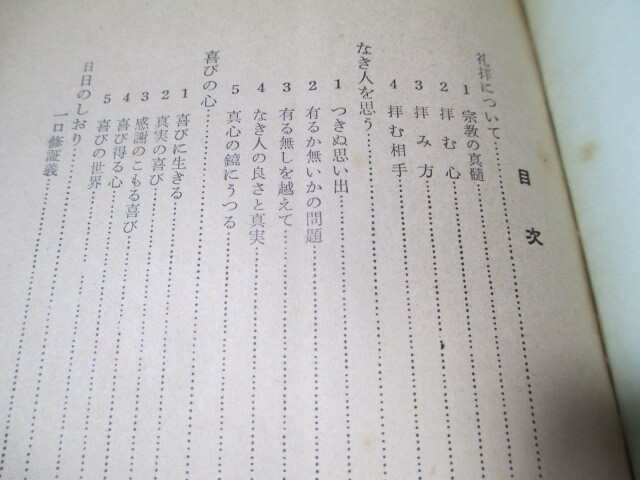 目次
礼拝について
1 宗教の真髄
2 拝む心
3 拝み方
4 拝む相手
なき人を思う
1 つきぬ思い出
2 有るか無いかの問題
3 有る無しを越えて
4 なき人の良さと真実
5 真心の鏡にうつる
喜びの心
1 喜びに生きる
2 真実の喜び
3 感謝のこもる喜び
4 喜び得る心
5 喜びの世界
日日のしおり
一口修証義